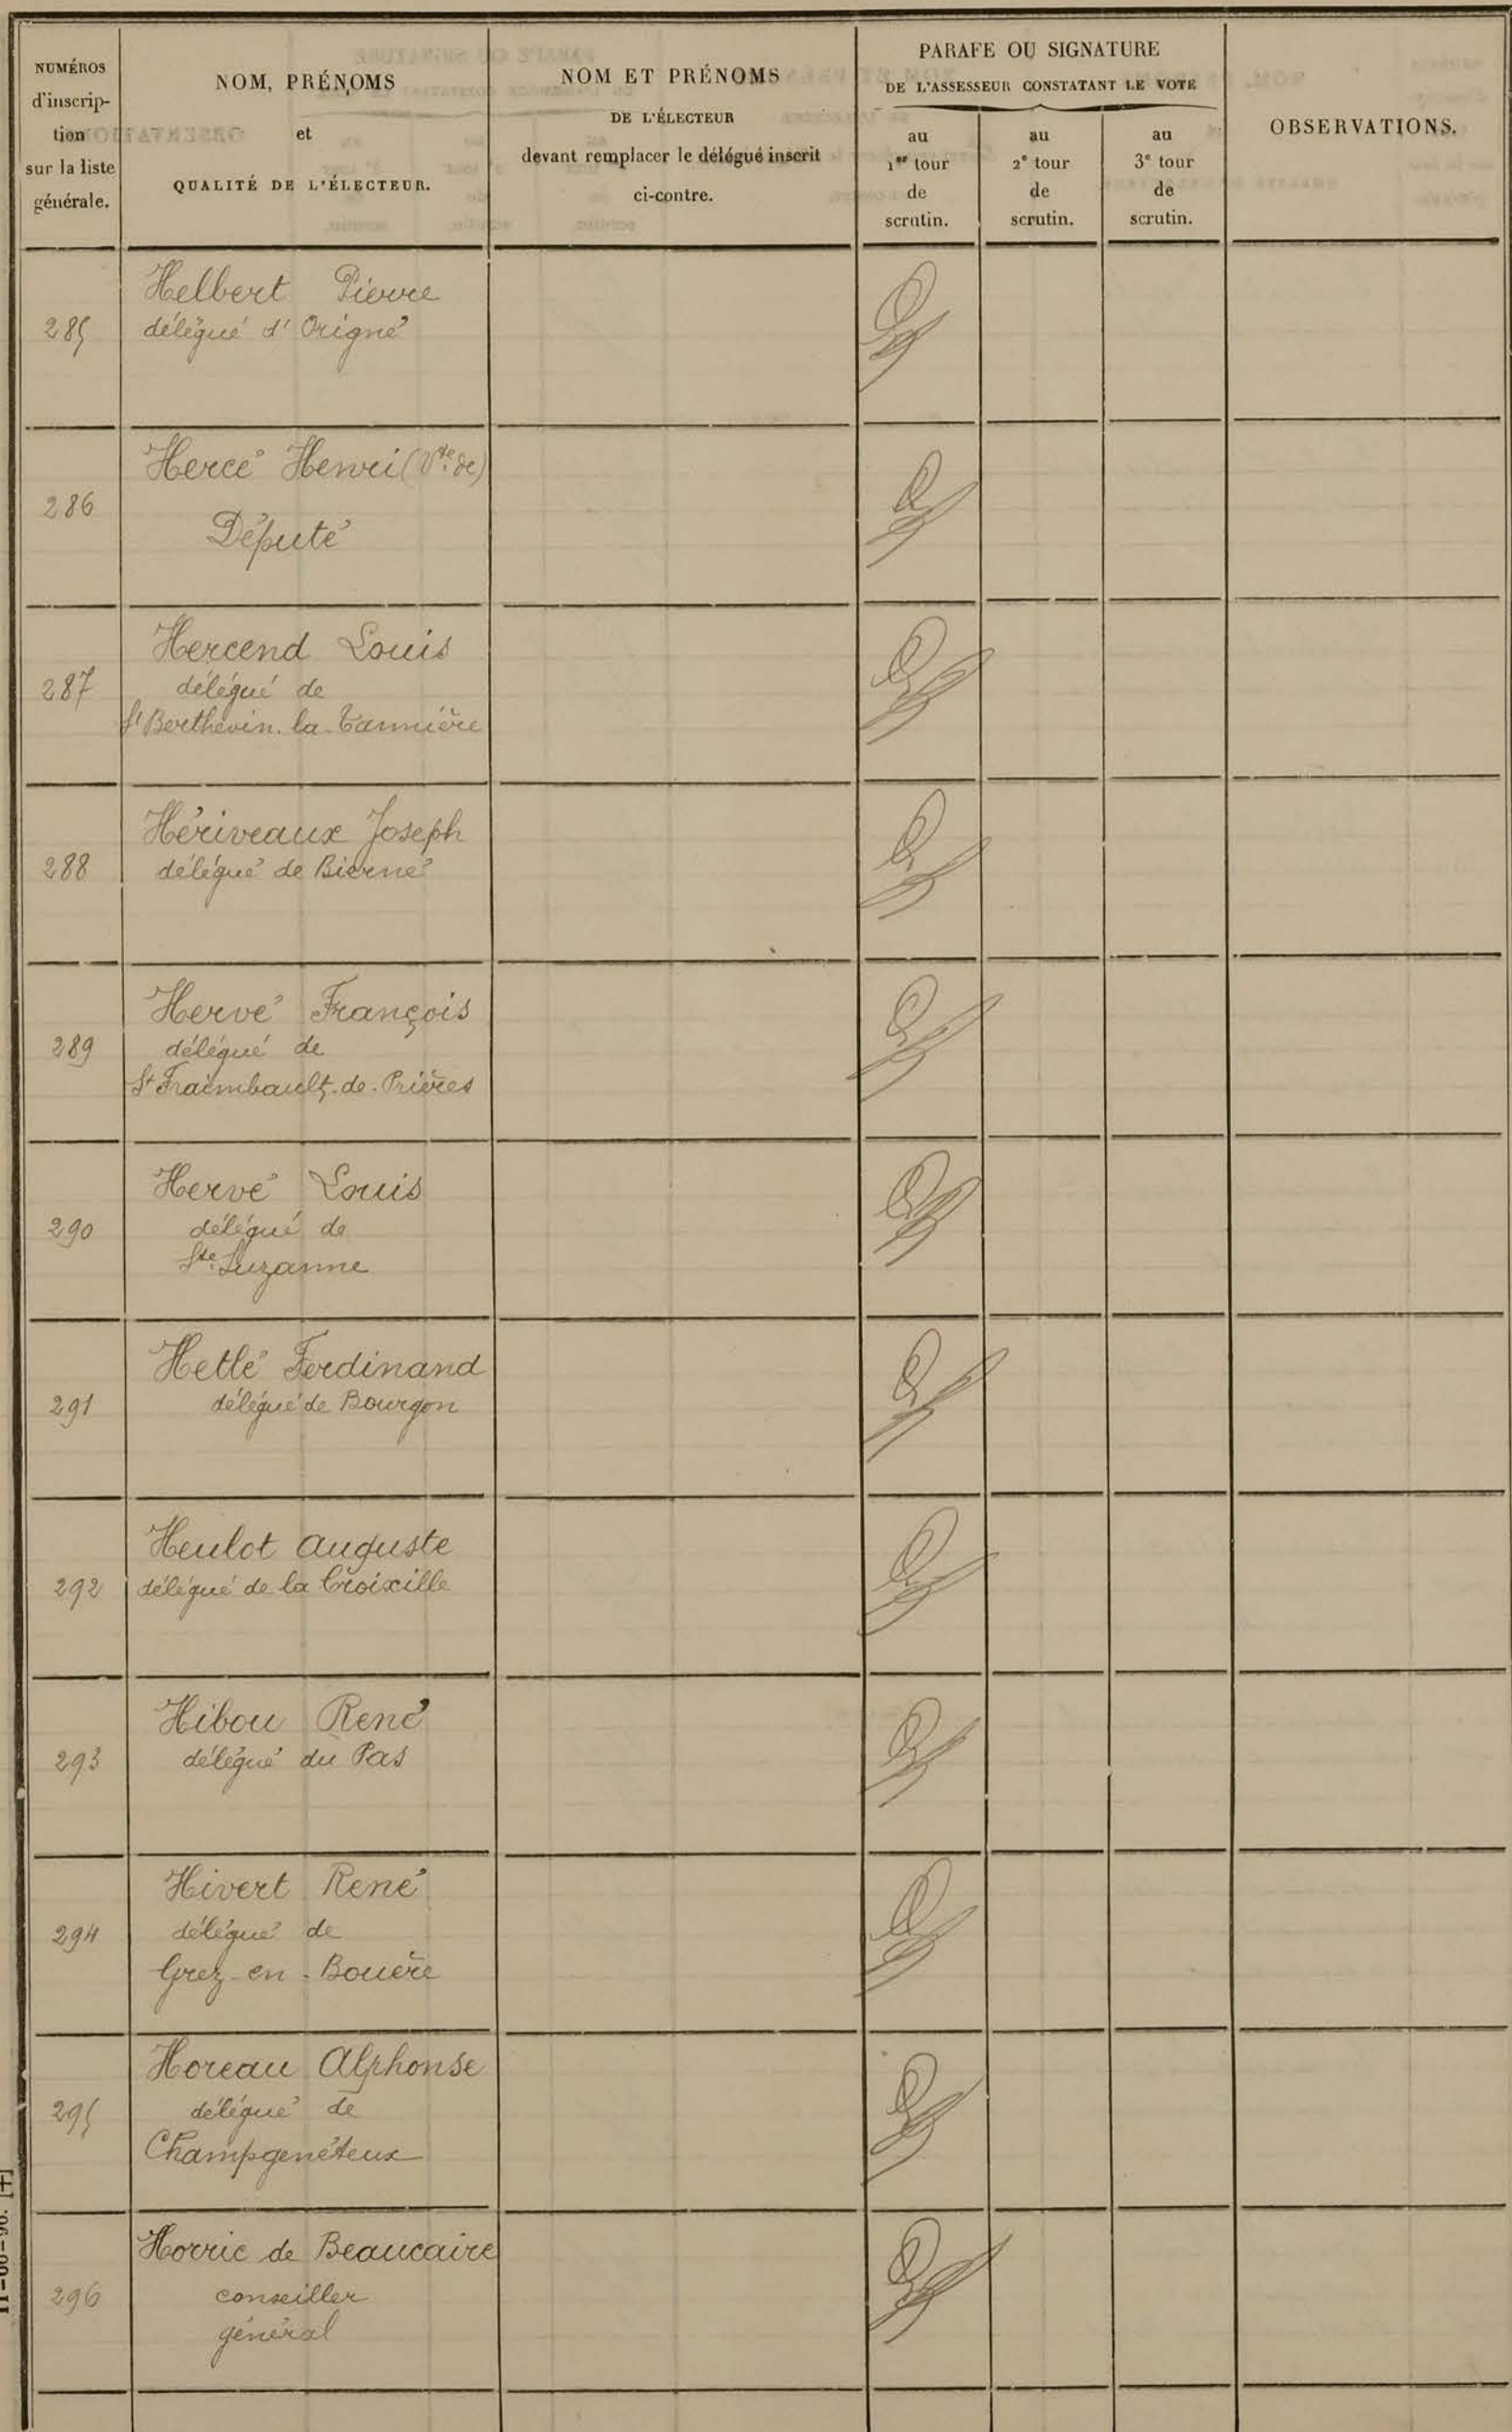 NUMÉROS
d'inscrip-
tion
sur la liste
générale.
NOM, PRÉNOMS
et
QUALITÉ DE L'ÉLECTEUR.
NOM ET PRÉNOMS
DE L'ÉLECTEUR
devant remplacer le délégué inscrit
ci-contre.
PARAFE OU SIGNATURE
DE L'ASSESSEUR CONSTATANT LE VOTE
au
1er tour
de
scrutin.
au
2e tour
de
scrutin.
au
3e tour
de
scrutin.
OBSERVATIONS.
Helbert Pierre
285 délégué d'Origné
Hercé Henri (Vte de)
286
Député
Hercend Louis
287 délégué de
St Berthevin-la-Tannière
Hériveaux Joseph
288 délégué de Bierné
Hervé François
289 délégué de
St Fraimbault-de-Prières
Hervé Louis
290 délégué de
Ste Suzanne
Hetlé Ferdinand
291 délégué de Bourgon
Heulot Auguste
292 délégué de la Croixille
Hibou René
293 délégué du Pas
Hivert René
294 délégué de
Grez-en-Bouère
Horeau Alphonse
295 délégué de
Champgenéteux
Horric de Beaucaire
296 conseiller
général